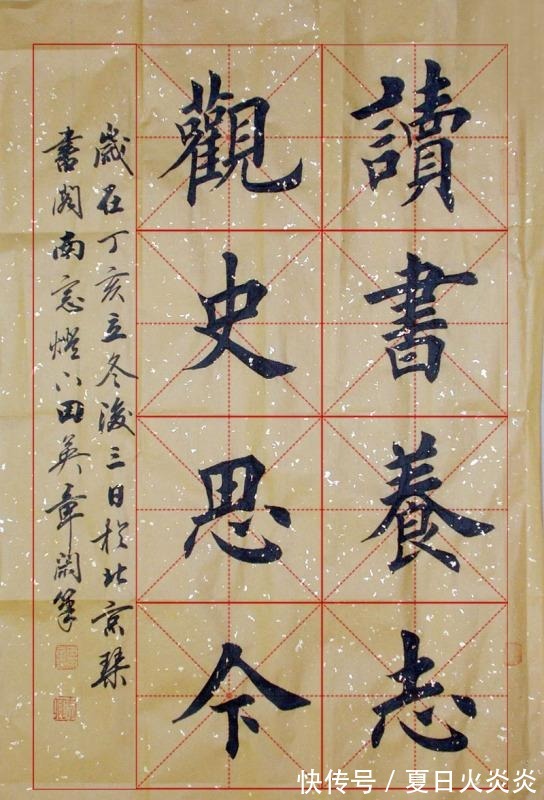 讀書養志
觀史思今
歲在丁亥立冬後三日於北京琴
書閣南窓燈下田英章閑筆
快传号 / 夏日火炎炎